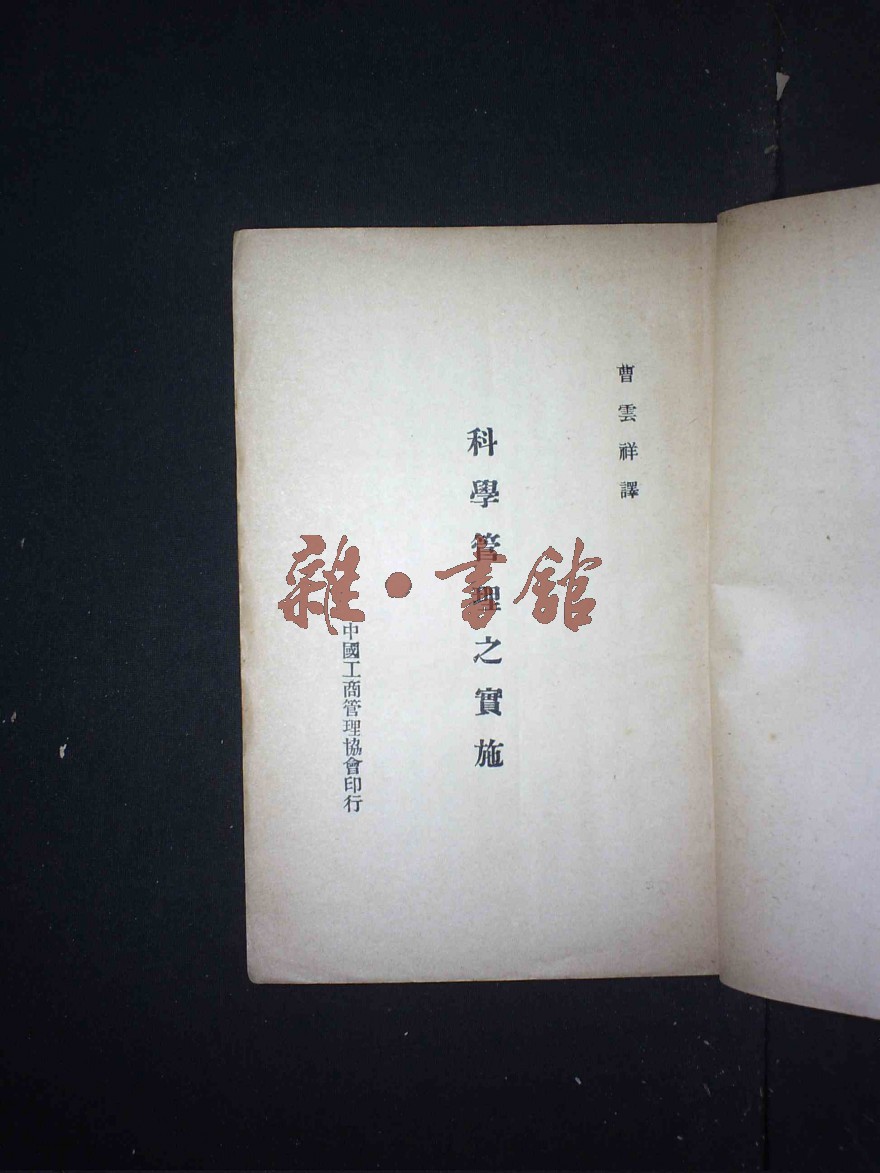 曹雲祥譯
科學管理之實施
中國工商管理協會印行
雜·書館